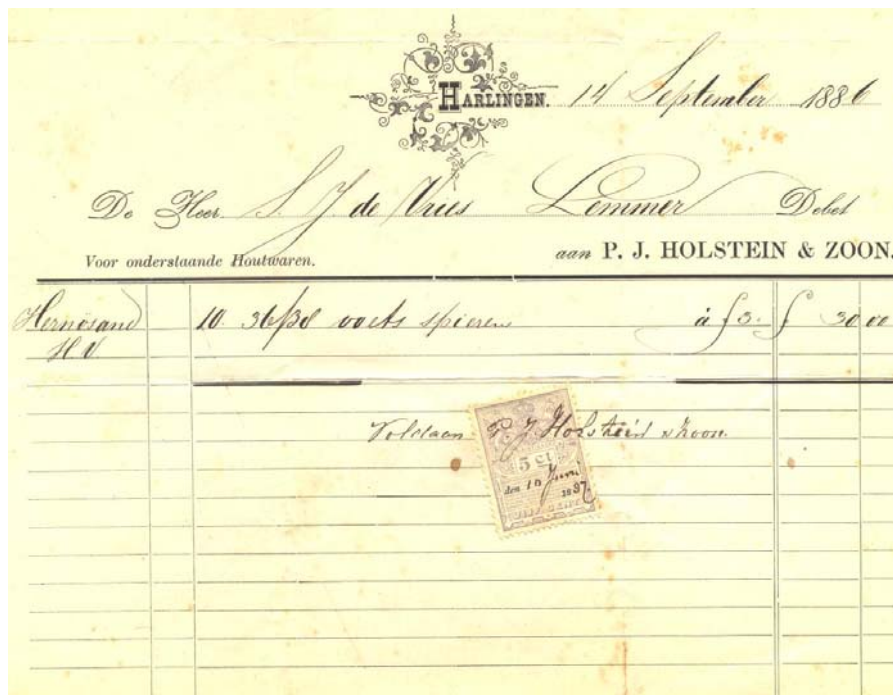 HARLINGEN. 14 September 1886
De Heer S. J. de Vries Lemmer Debet
Voor onderstaande Houtwaren. aan P. J. HOLSTEIN & ZOON.
Hernösand 10. 36/38 voets spieren à f 3. f 30 00
H.V.
Voldaan P. J. Holstein & Zoon.
5 CT
den 10 Juni
1887
VIJF CENT